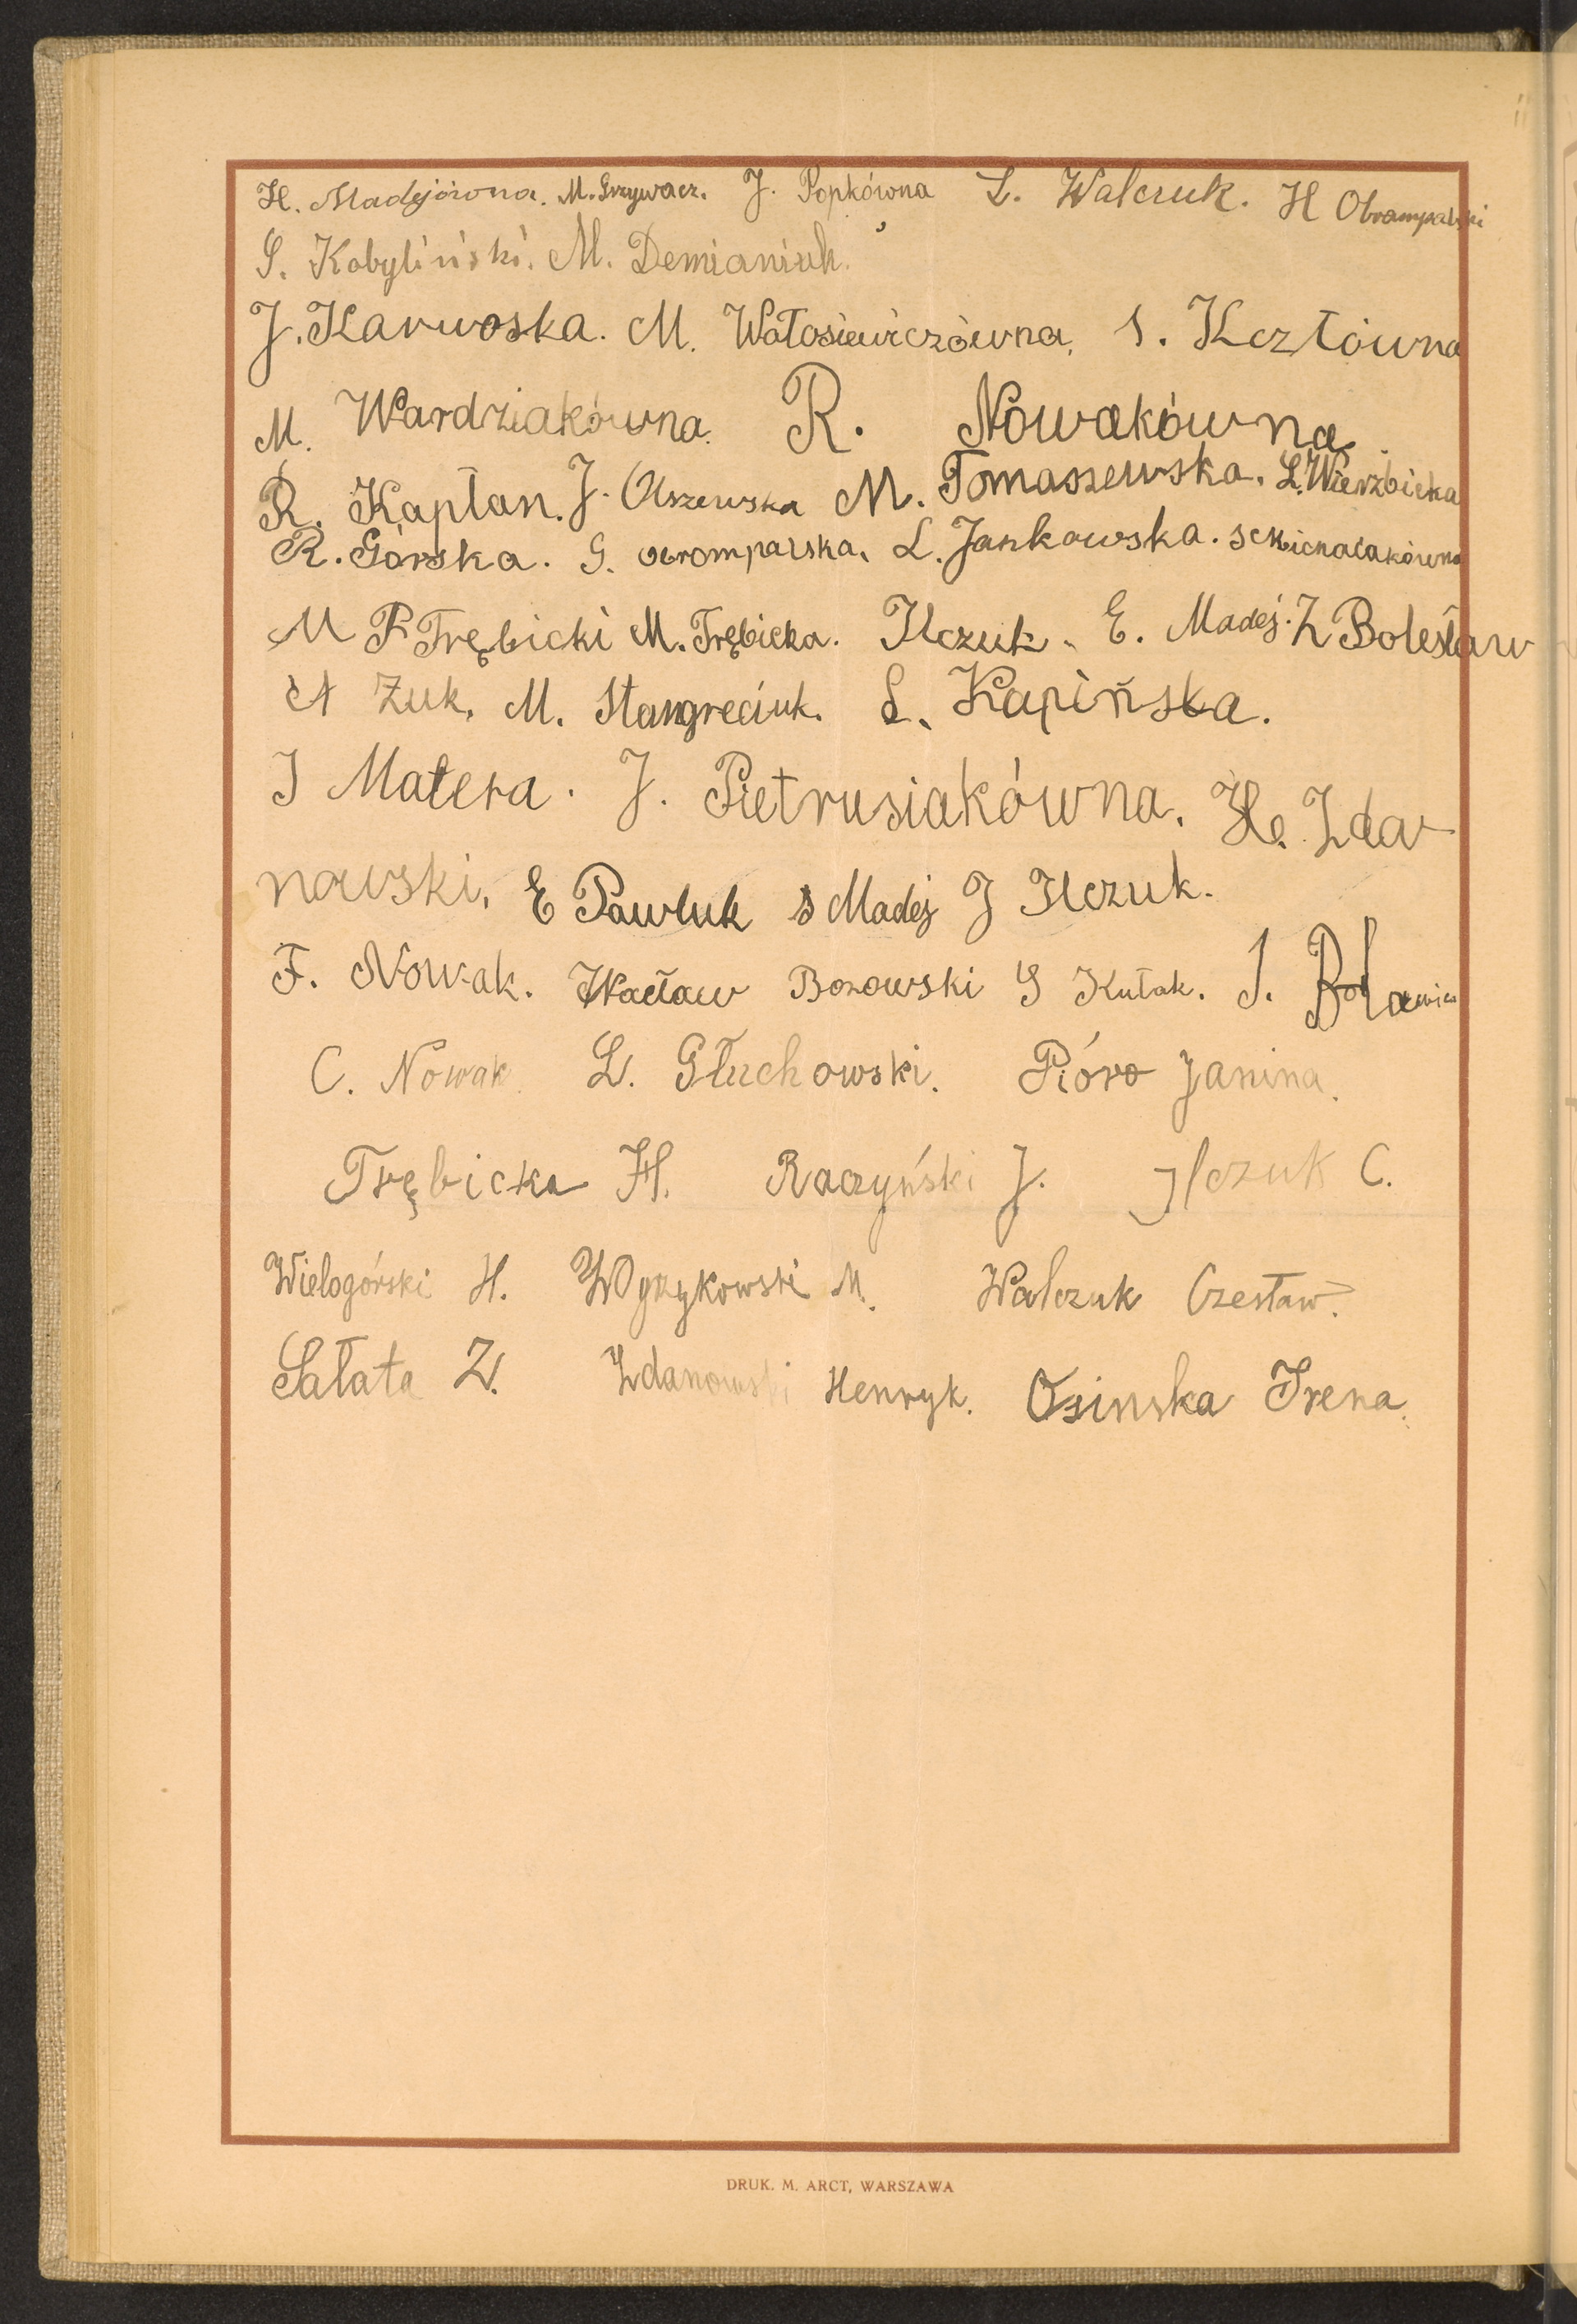 H. Madejówna. M. Grzywacz. J. Popkówna L. Walczuk. H Obrąmpalski
S. Kobyliński. M. Demianiuk.
J. Karwoska. M. Wołosiewiczówna. S. Kcztówna
M. Wardziakówna. R. Nowakówna
R. Kapłan. J. Olszewska M. Tomaszewska. L. Wierzbicka
R. Górska. G. obrompalska. L. Jankowska.
M P Trębicki M. Trębicka. Ilczuk. E. Madej. Z Bolesław
A Żuk. M. Stangreciuk. L. Kapińska.
J Matera. J. Pietrusiakówna. H. Zda-
nowski. E Pawluk S Madej J Ilczuk.
F. Nowak. Wacław Borowski S Kułak. J.
C. Nowak L. Głuchowski. Pióro Janina.
Trębicka H. Raczyński J. Ilczuk C.
Wielogórski H. Wyrzykowski M. Walczuk Czesław.
Sałata Z. Zdanowski Henryk. Osinska Irena.
DRUK. M. ARCT, WARSZAWA